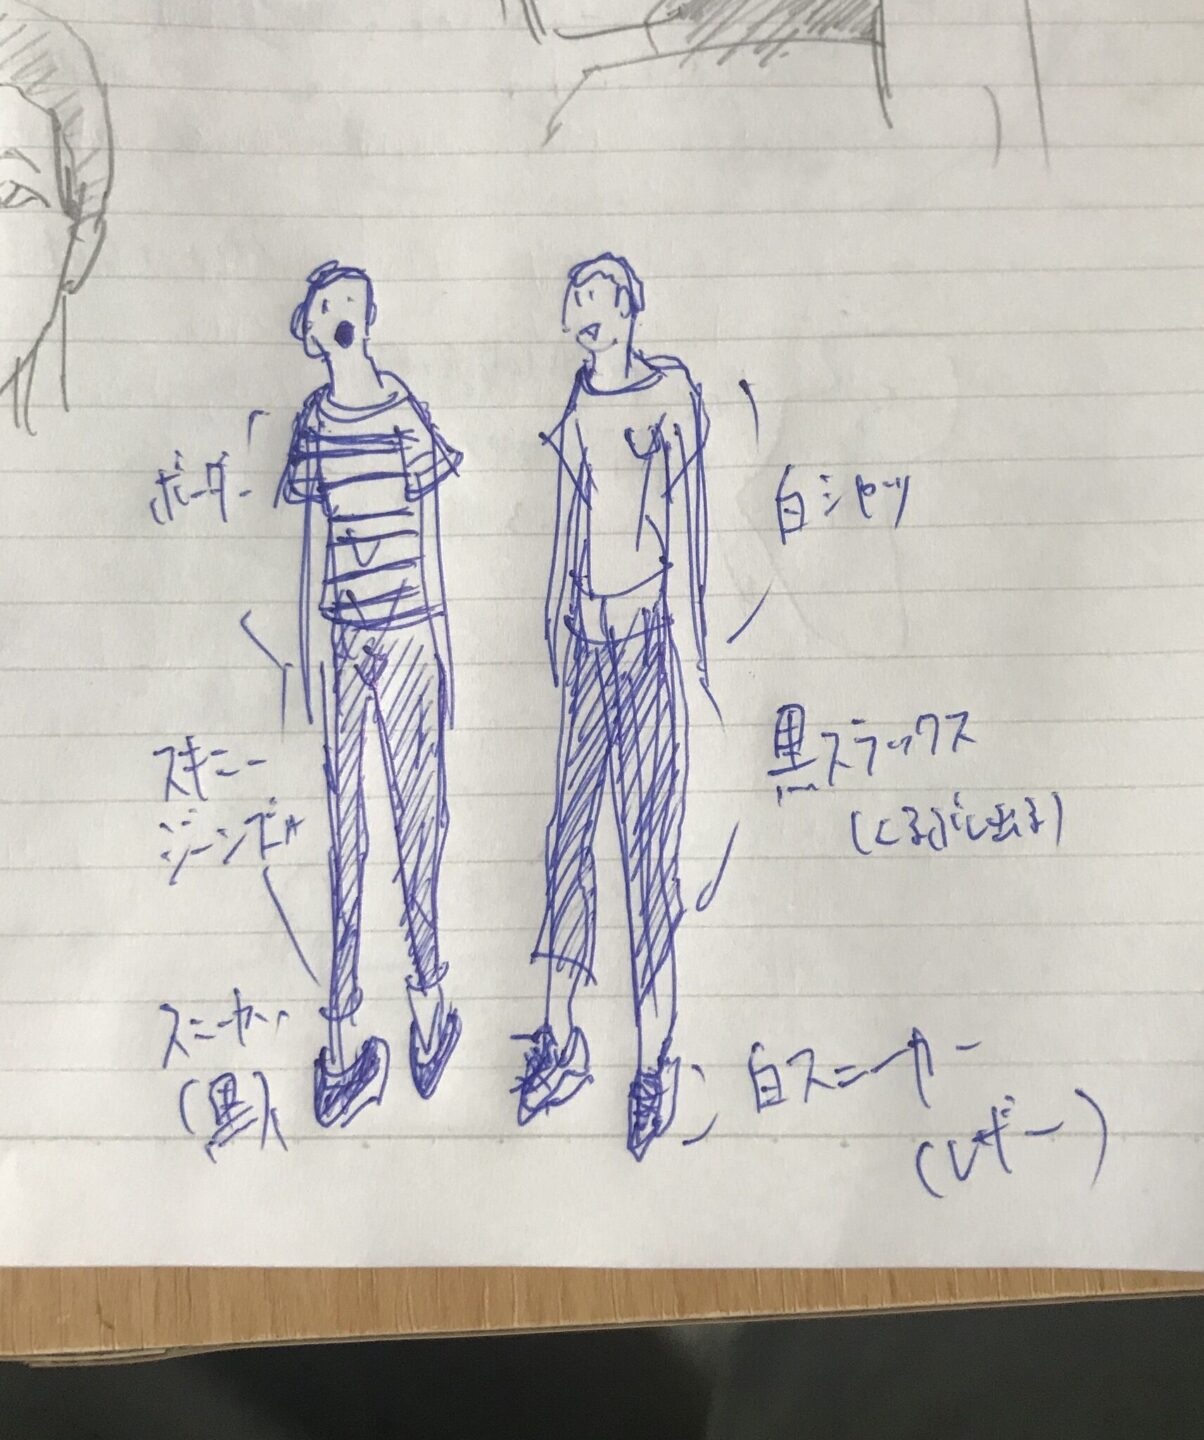 ボーダー
スキニー
ジーンズ
スニーカー
(黒)
白シャツ
黒スラックス
(くるぶし出る)
白スニーカー
(レザー)